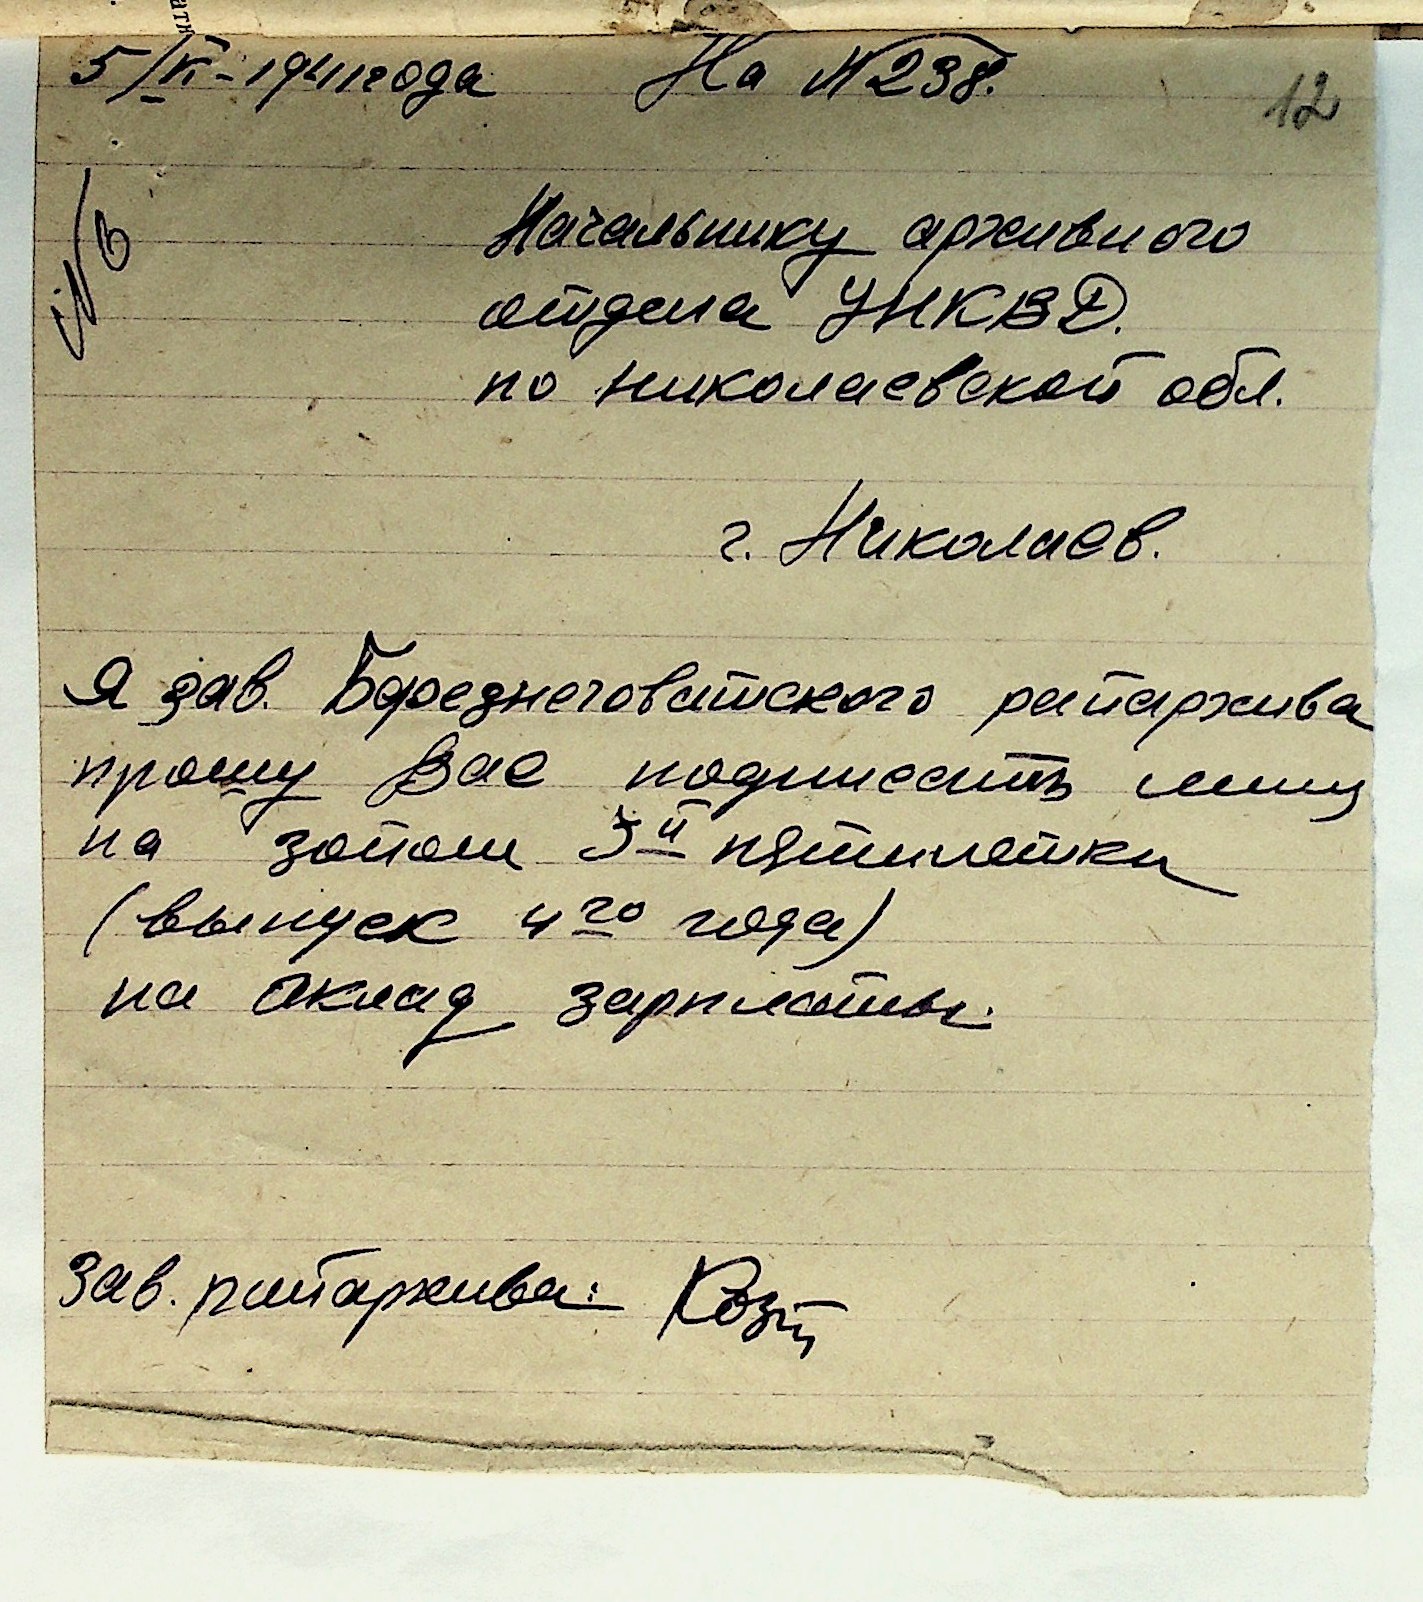 5/VI-1941 года На N238.
12
N 6
Начальнику архивного
отдела УНКВД.
по николаевской обл.
г. Николаев.
Я зав. Березнеговатского райархива
прошу Вас подписать мину
на зайом 3й пятилетки
(выпуск 4го года)
на оклад зарплаты.
Зав. райархива: